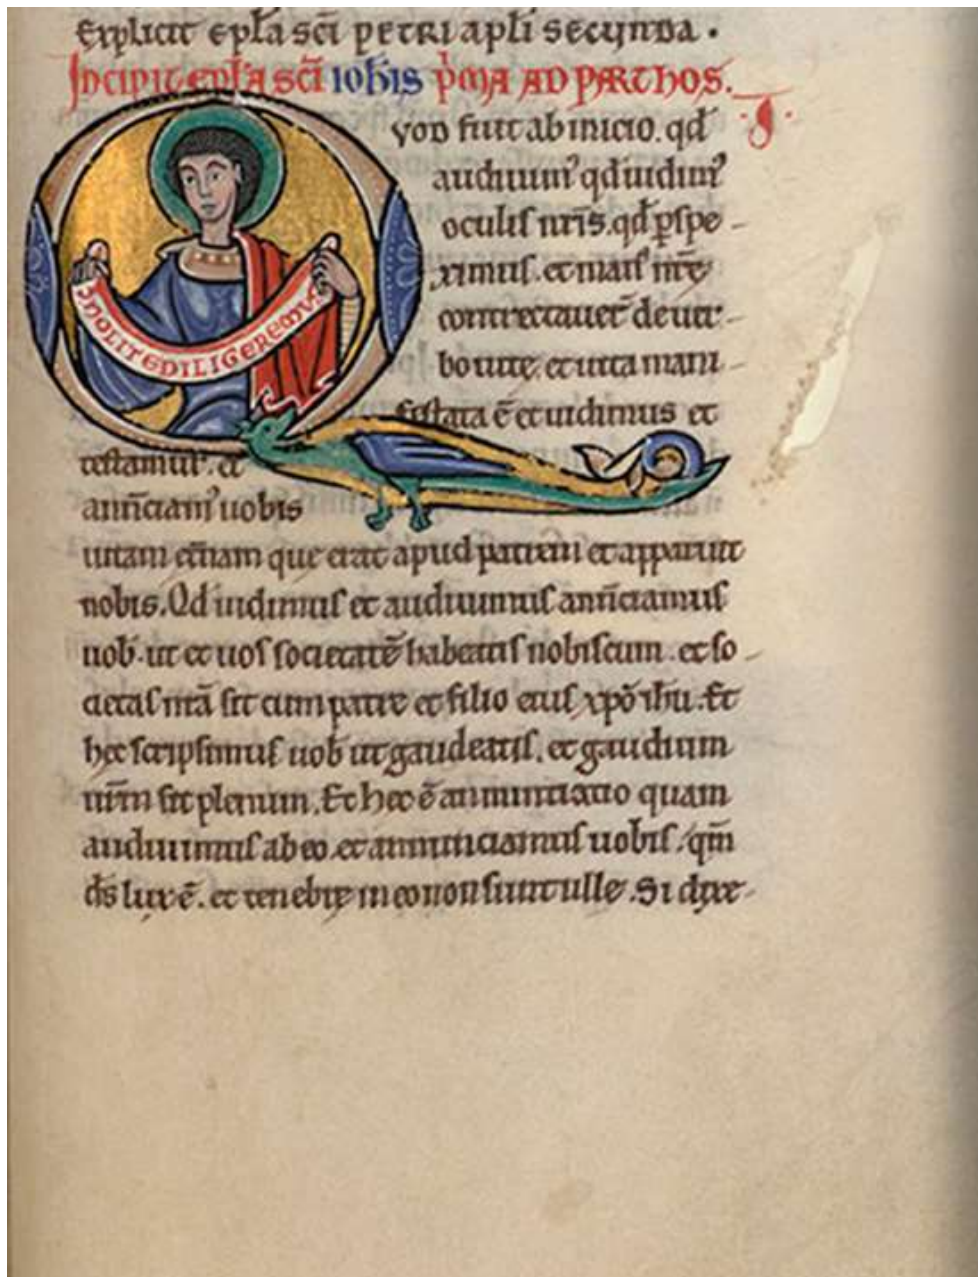 Explicit ep̅l̅a sc̅i̅ petri apl̅i secunda.
Incipit ep̅l̅a sc̅i̅ ioh̅is p̅ma ad parthos.
I
Quod fuit ab inicio. qd̅
audiuim᷒ qd̅ uidim᷒
oculis nr̅is. qd̅ ꝑspe-
ximus. et man᷒ nr̅ę
contrectauer̅ de uer-
bo uitę. et uita mani-
festata ē et uidimus et
testamur. et
ann̅ciam᷒ uobis
NOLITE DILIGERE MV̅
uitam et̅nam que erat apud patrem et apparuit
nobis. Qd̅ uidimus et audiuimus ann̅ciamus
uob̅. ut et uos societatē habeatis nobiscum. et so-
cietas nr̅a sit cum patre et filio eius xp̅o ih̅u. Et
hęc scripsimus uob̅ ut gaudeatis. et gaudium
ur̅m sit plenum. Et hec ē annuntiatio quam
audiuimus ab eo. et annunciamus uobis. qm̅
ds̅ lux ē. et tenebrę in eo non sunt ulle. Si dixe-